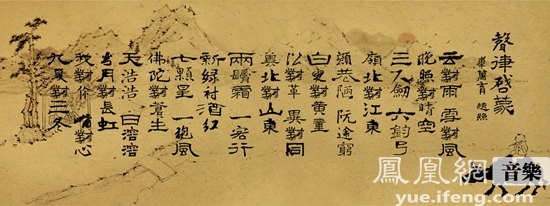 聲律啓蒙
車萬育 趙照
雲對雨 雪對風
晚照對晴空
三尺劍 六鈞弓
嶺北對江東
顏巷陋 阮途窮
白叟對黃童
沿對革 異對同
冀北對山東
兩鬢霜 一客行
新綠襯酒紅
七顆星 一 風
佛陀對蒼生
天浩浩 日溶溶
月對長虹
我對你 對心
九夏對三冬
鳳凰網 音樂
yue.ifeng.com